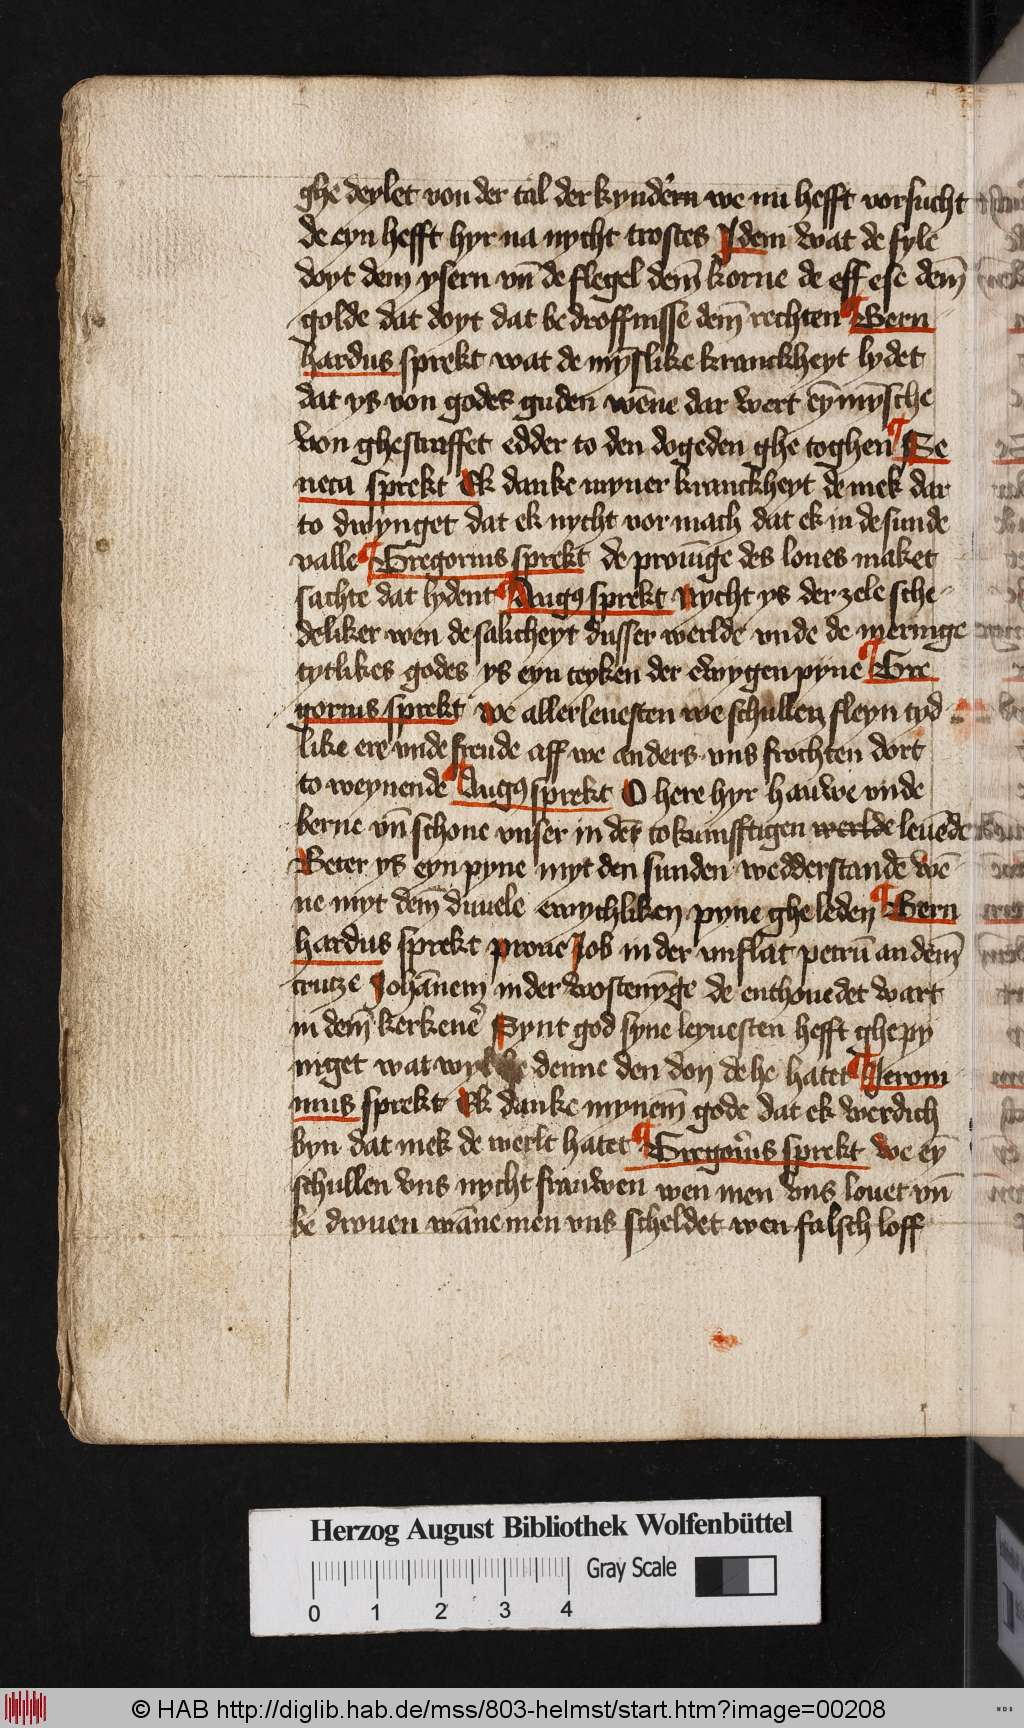 ghe deylet von der tal der kyndern we nu hefft vorsucht
de eyn hefft hyr na nycht trostes Idem wat de fyle
doyt dem ysern vn̄ de flegel dem̄ korne de eff ese dem̄
golde dat doyt dat be droffnisse dem̄ rechten ¶ Bern
hardus sprekt wat de myn̄slike kranckheyt lydet
dat ys von godes guden wēne dar wert eȳ mȳsche
von ghestraffet edder to den dogeden ghe toghen ¶ Se
neca sprekt Ek danke myner kranckheyt de mek dar
to dwynget dat ek nycht vor mach dat ek in de sunde
valle ¶ Gregorius sprekt de prouīge des loues maket
sachte dat lydent ¶ Augꝯ sprekt Nycht ys der zele sche
deliker wen de salicheyt dusser werlde vnde de meringe
tytlikes godes ys eyn teyken der ewygen pyne ¶ Gre
gorius sprekt we allerleuesten we schullen fleyn tyd
like ere vnde freude aff we anders vns frochten dort
to weynende ¶ Augꝯ sprekt O here hyr hauwe vnde
berne vn̄ schone vnser in der tokumfftigen werlde leuēde
Beter ys eyn pyne myt den sunden wedderstandē wē
ne myt dem̄ duuele ewychliken pyne ghe leden ¶ Bern
hardus sprekt proue Job in der vnflat petrū an dem̄
crutze Johānem in der wostenȳge de enthouedet wart
in dem̄ kerkener Synt god syne leyuesten hefft ghe py
niget wat wyl he denne den don de he hatet ¶ Ieroni
mus sprekt Ek danke mynem̄ gode dat ek werdich
byn dat mek de werlt hatet ¶ Gregorius sprekt we eȳ
schullen vns nycht frauwen wen men vns louet vn̄
be drouen wāne men vns scheldet wen falsch loff
Herzog August Bibliothek Wolfenbüttel
Gray Scale
0 1 2 3 4
© HAB http://diglib.hab.de/mss/803-helmst/start.htm?image=00208